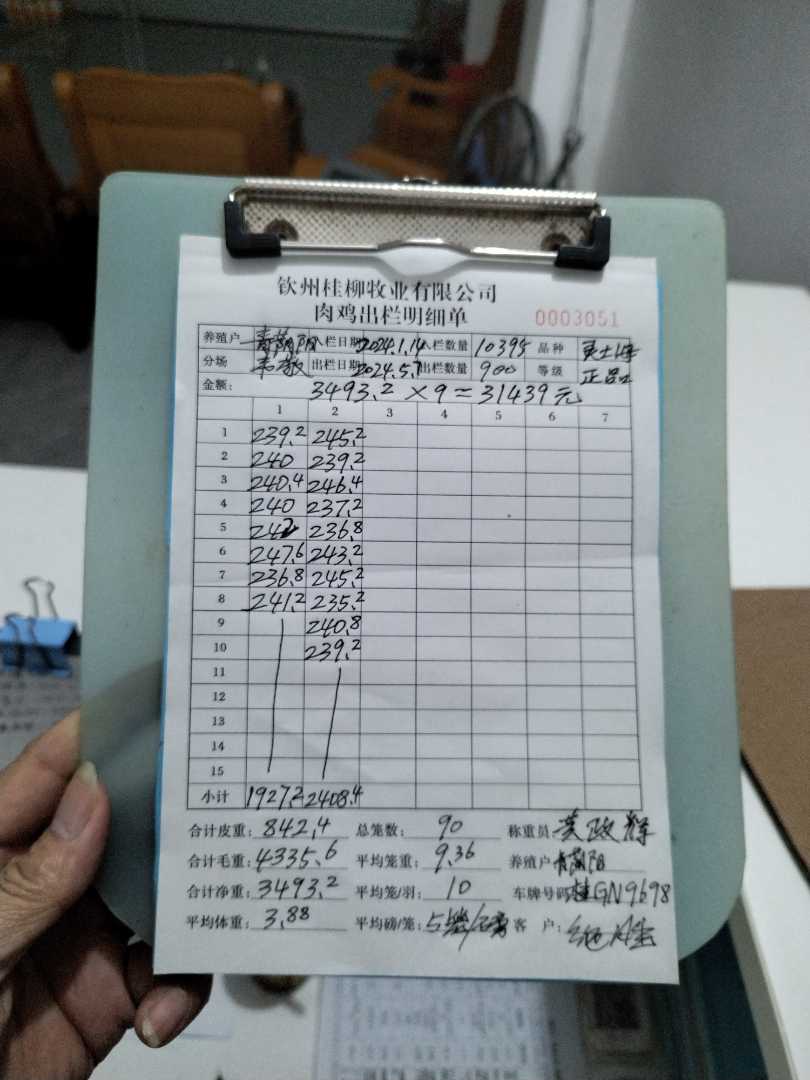 钦州桂柳牧业有限公司
肉鸡出栏明细单 0003051
养殖户 入栏日期 2024.1.14 入栏数量 10395 品种
分场 出栏日期 2024.5.7 出栏数量 900 等级 正品
金额: 3493.2 × 9 = 31439元
1 2 3 4 5 6 7
1 239.2 245.2
2 240 239.2
3 240.4 246.4
4 240 237.2
5 242 236.8
6 247.6 243.2
7 236.8 245.2
8 241.2 235.2
9 240.8
10 239.2
11
12
13
14
15
小计 1927.2 2408.4
合计皮重: 842.4 总笼数: 90 称重员
合计毛重: 4335.6 平均笼重: 9.36 养殖户
合计净重: 3493.2 平均笼/羽: 10 车牌号码 桂GN9698
平均体重: 3.88 平均磅/笼: 5 客户: